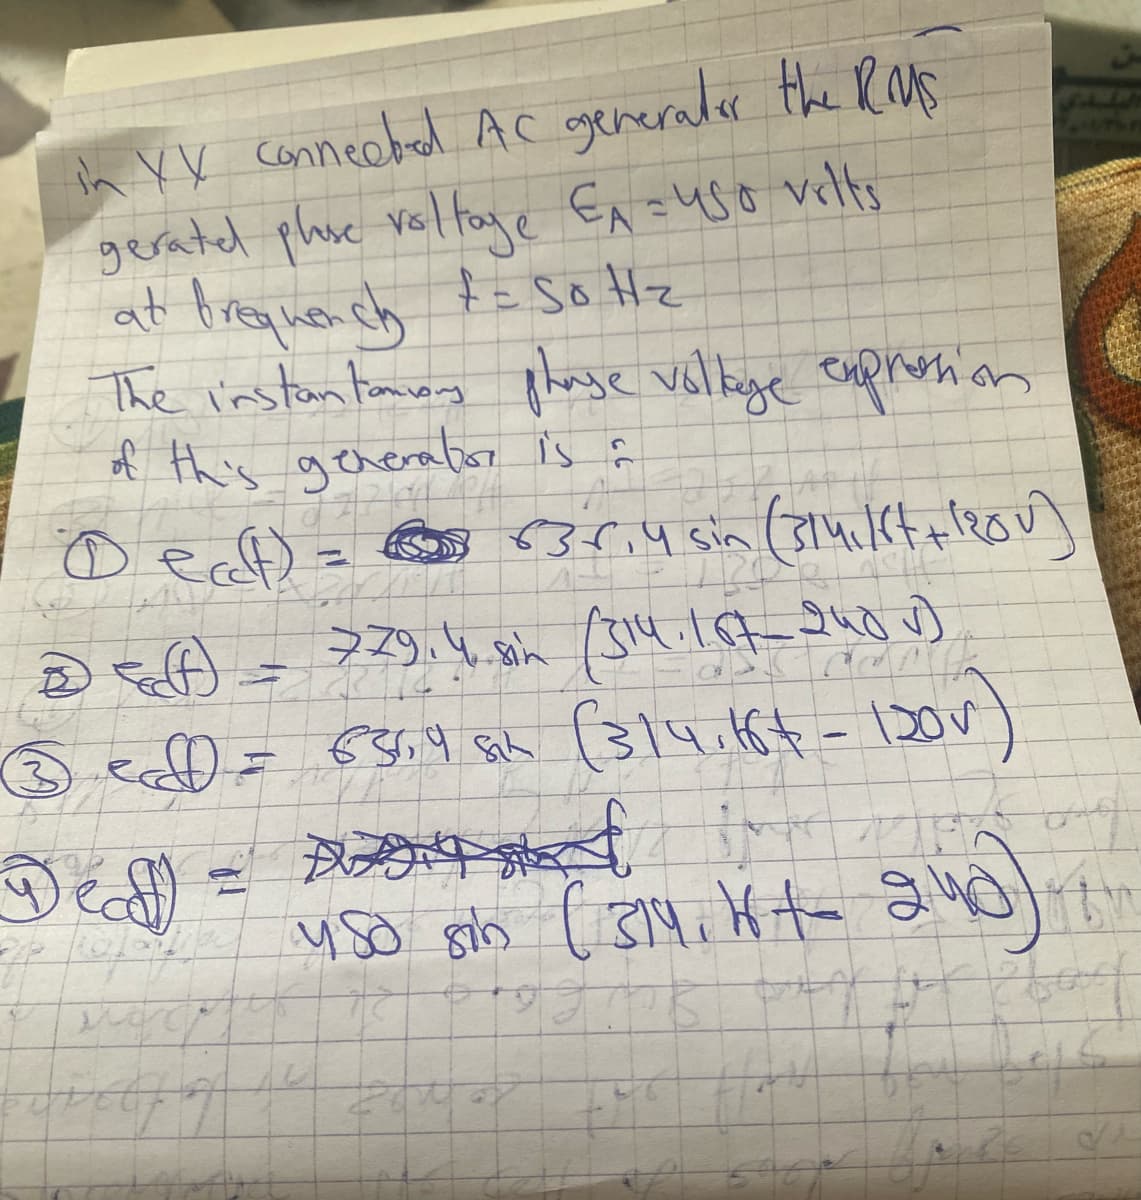 in YY connected AC generator the RMS
gerated phse voltage EA = 450 volts
at frequency f = 50 Hz
The instantaneous phase voltage expression
of this generator is :
① ec(t) = 636.4 sin (314.16t + 120 v)
② ec(t) = 779.4 sin (314.16t - 240 v)
③ ec(t) = 636.4 sin (314.16t - 120 v)
④ ec(t) =
450 sin (314.16t - 240)